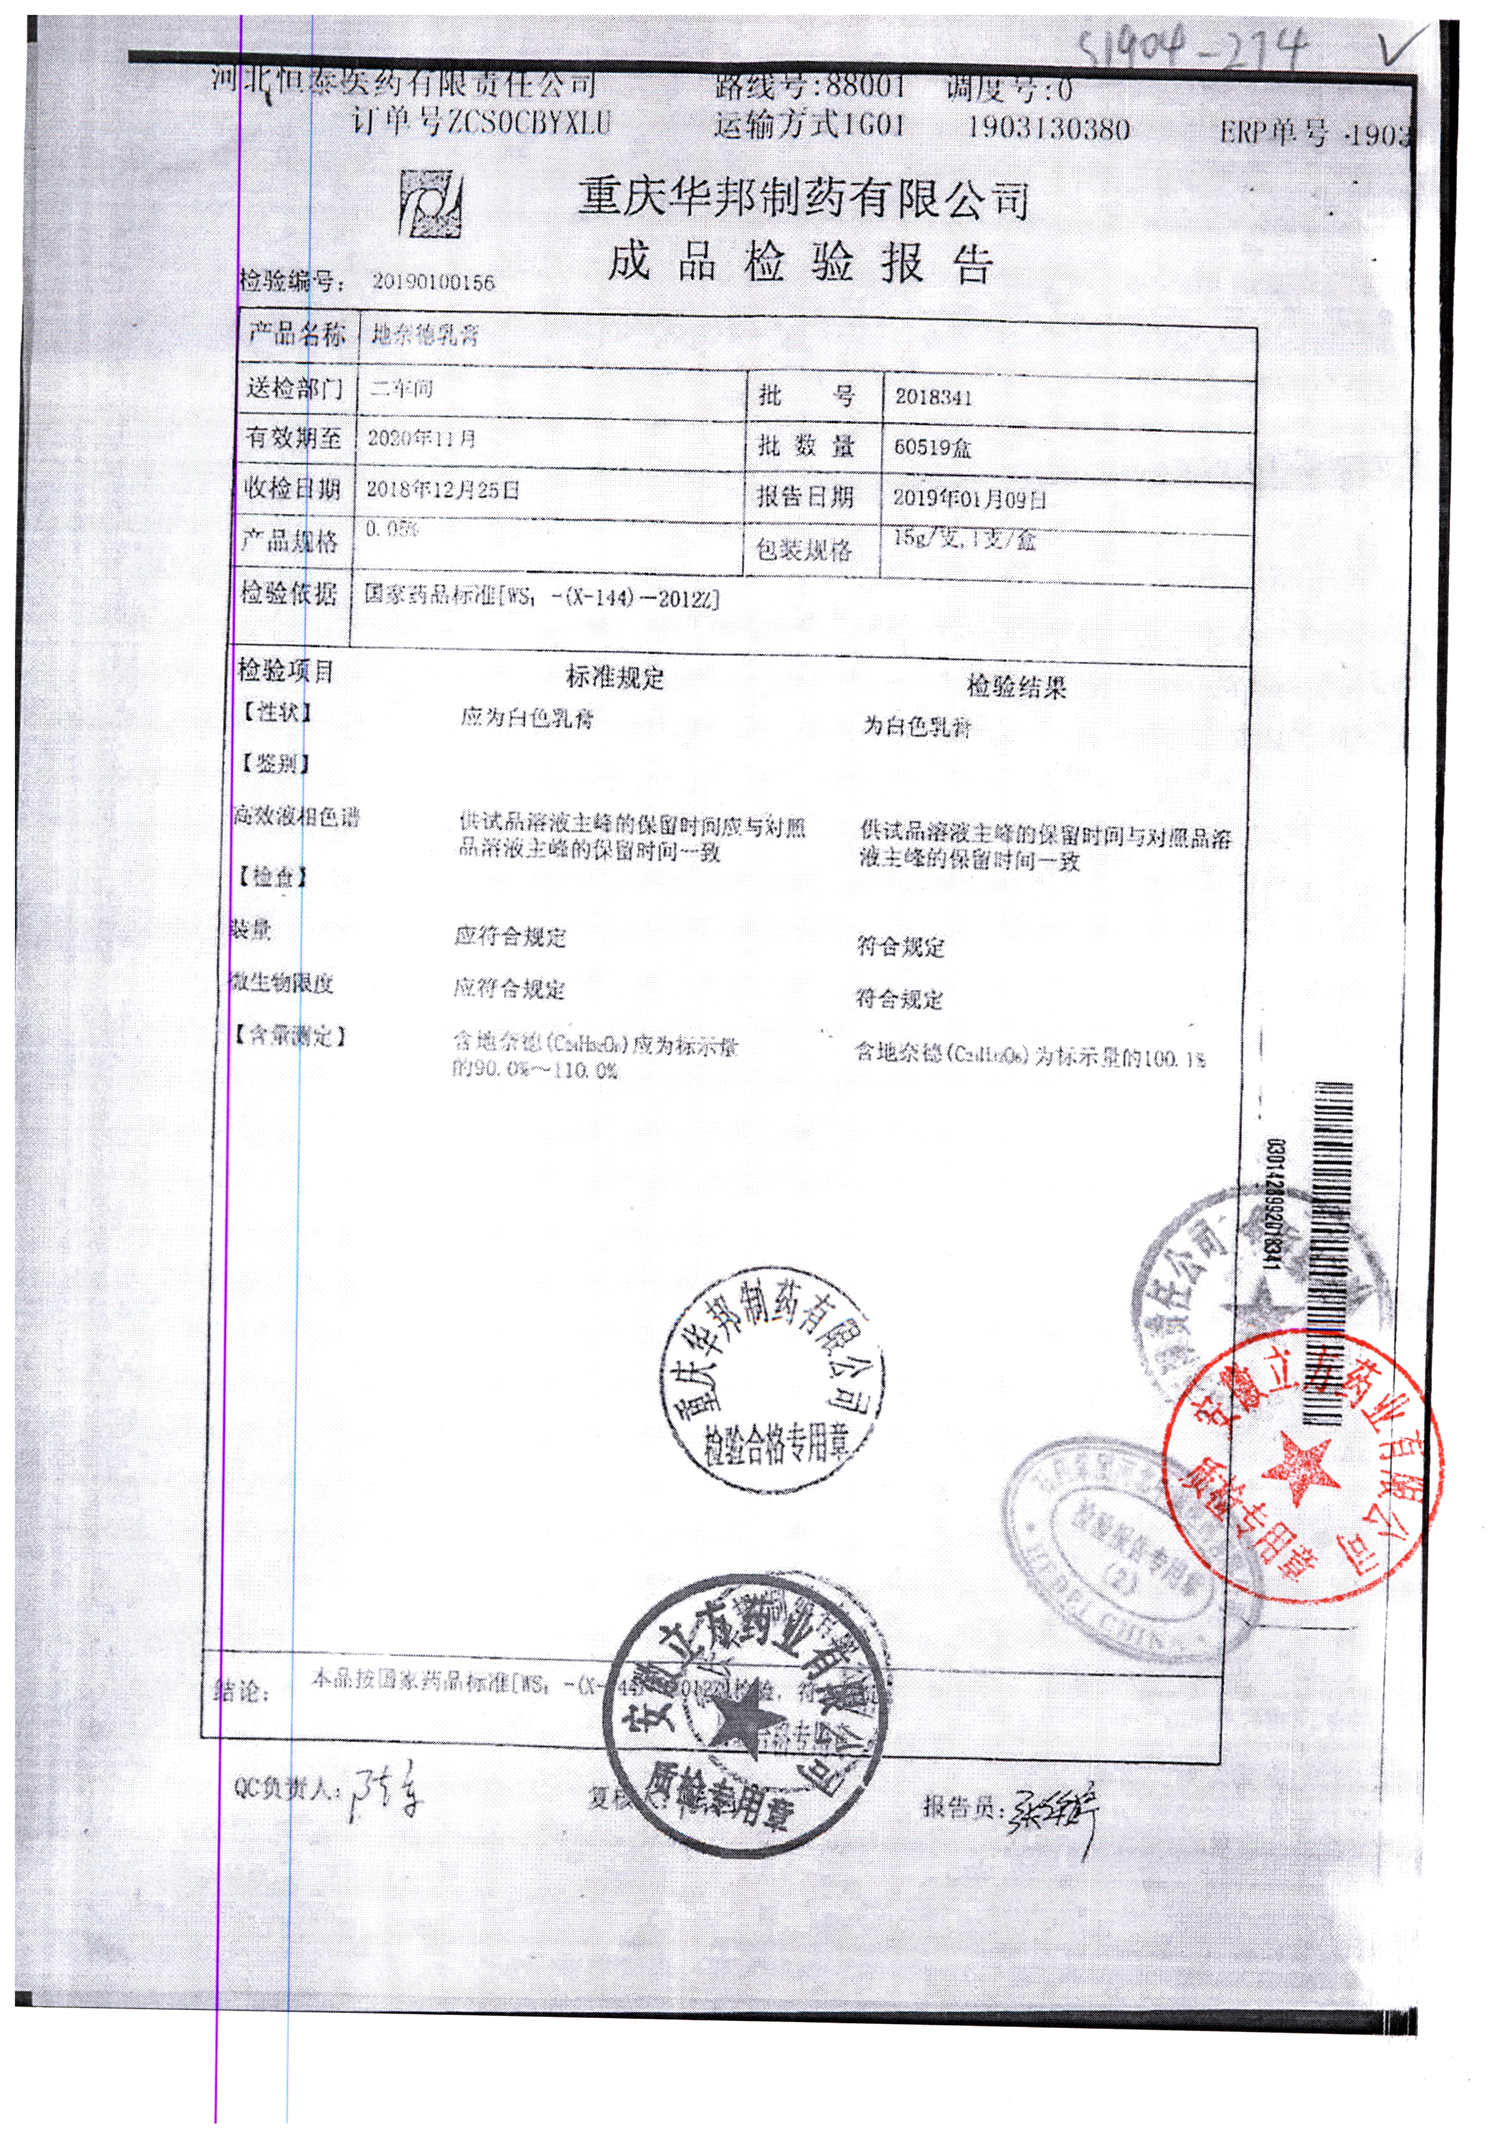 S1904-274
河北恒泰医药有限责任公司 路线号:88001 调度号:0
订单号ZCS0CBYXLU 运输方式1G01 1903130380 ERP单号 -1903
重庆华邦制药有限公司
成品检验报告
检验编号： 20190100156
产品名称 地奈德乳膏
送检部门 二车间 批 号 2018341
有效期至 2020年11月 批 数 量 60519盒
收检日期 2018年12月25日 报告日期 2019年01月09日
产品规格 0.05% 包装规格 15g/支,1支/盒
检验依据 国家药品标准[WS₁ -(X-144)-2012Z]
检验项目 标准规定 检验结果
【性状】 应为白色乳膏 为白色乳膏
【鉴别】
高效液相色谱 供试品溶液主峰的保留时间应与对照 供试品溶液主峰的保留时间与对照品溶
品溶液主峰的保留时间一致 液主峰的保留时间一致
【检查】
装量 应符合规定 符合规定
微生物限度 应符合规定 符合规定
【含量测定】 含地奈德(C₂₄H₃₂O₆)应为标示量 含地奈德(C₂₄H₃₂O₆)为标示量的100.1%
的90.0%～110.0%
03014289992018341
责任公司
重庆华邦制药有限公司
检验合格专用章
安徽立方药业有限公司
质检专用章
检验报告专用章
(2)
HEBEI CHINA
结论： 本品按国家药品标准[WS₁ -(X-144)-2012Z]检验，符
安徽立方药业有限公司
质检专用章
QC负责人： 复核人： 报告员：